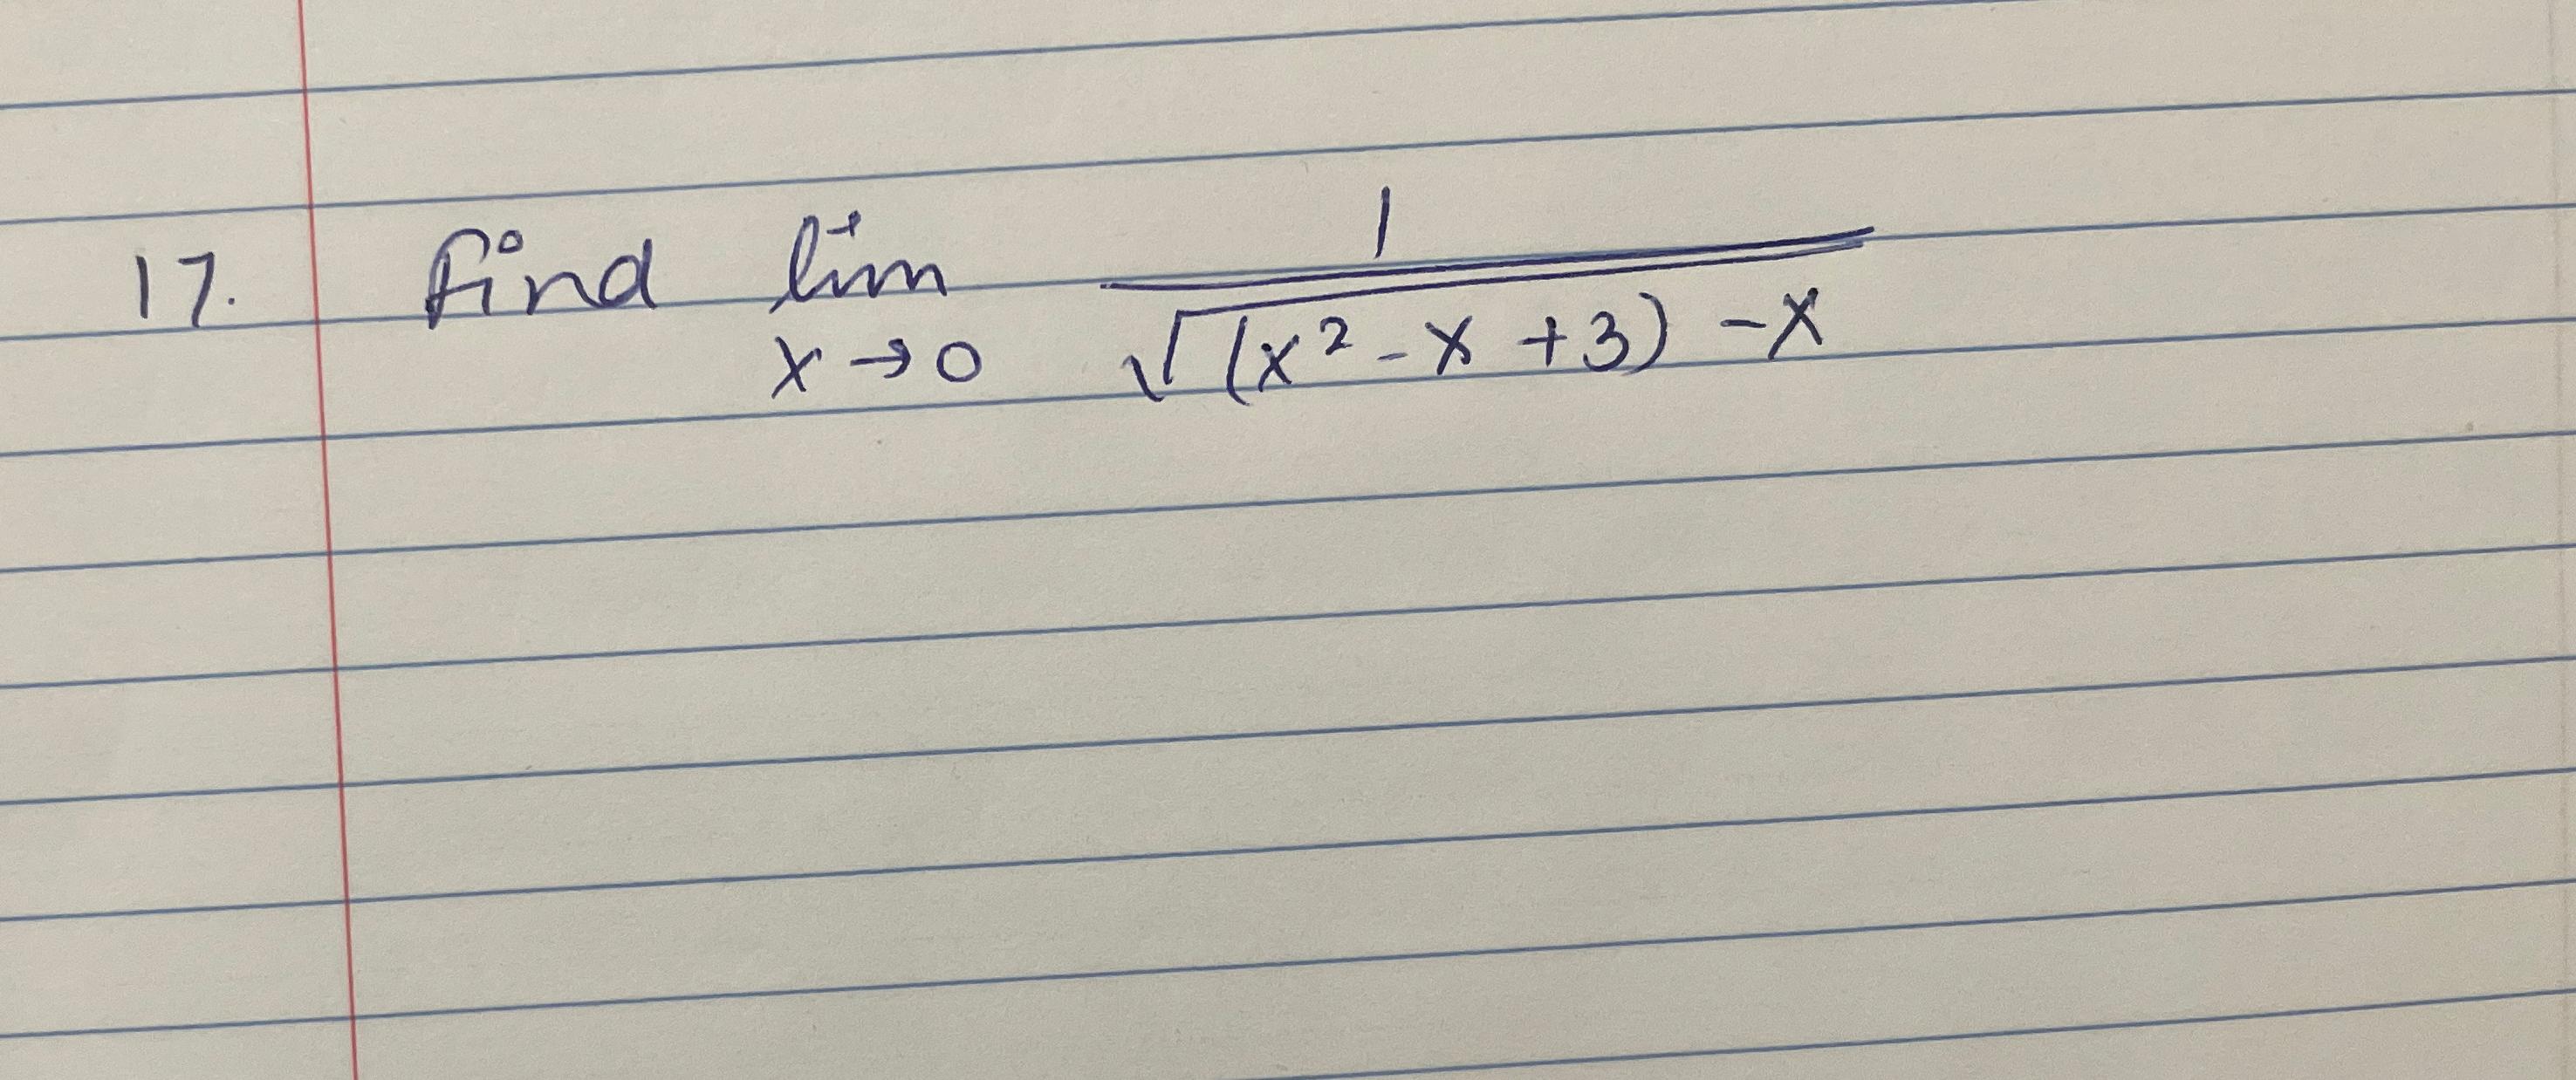 17. find lim 1
x→0 √((x² - x + 3) - x)